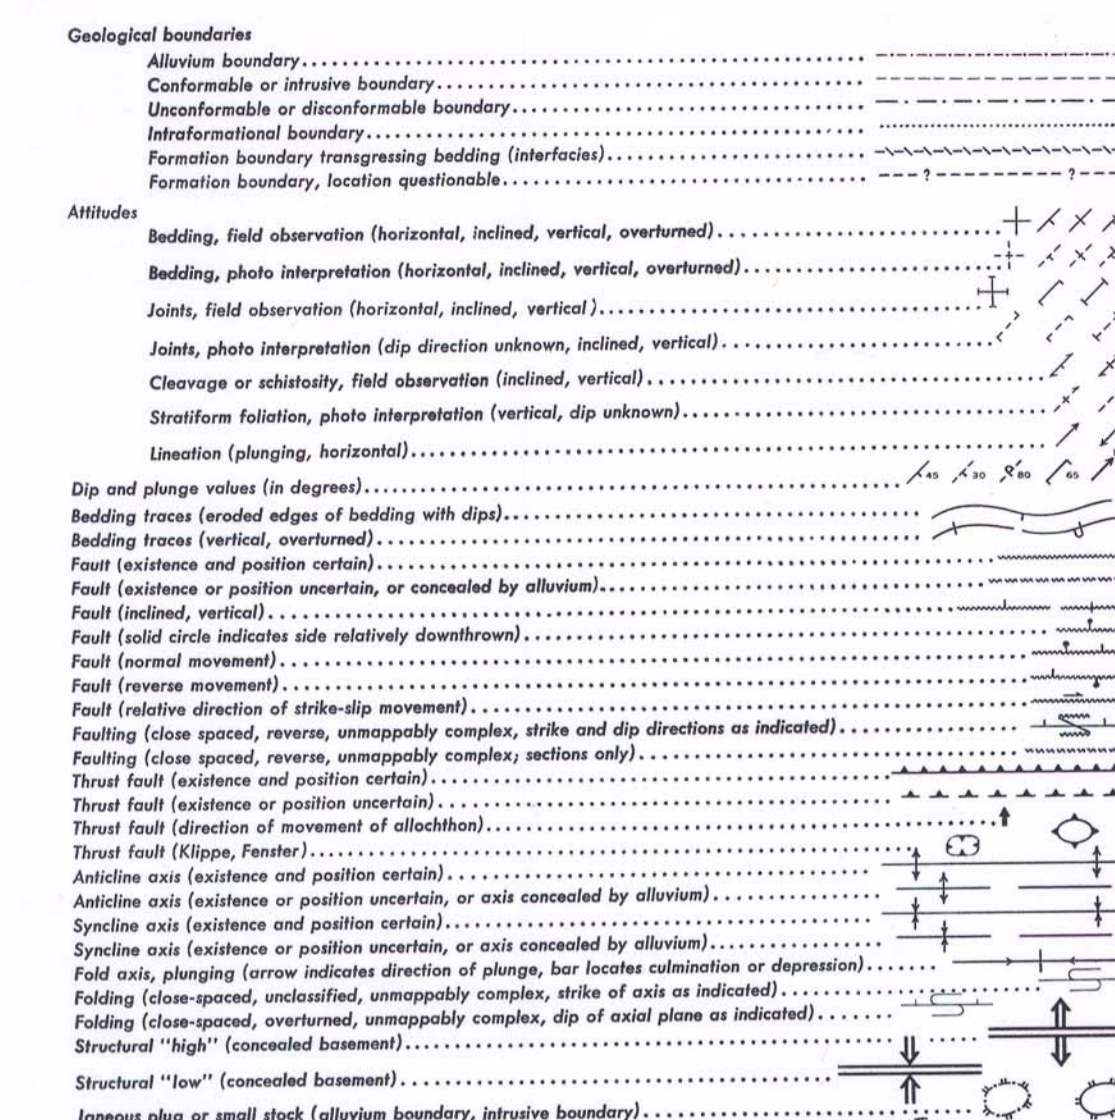 Geological boundaries
Alluvium boundary
Conformable or intrusive boundary
Unconformable or disconformable boundary
Intraformational boundary
Formation boundary transgressing bedding (interfacies)
Formation boundary, location questionable
? ?
Attitudes
Bedding, field observation (horizontal, inclined, vertical, overturned)
Bedding, photo interpretation (horizontal, inclined, vertical, overturned)
Joints, field observation (horizontal, inclined, vertical)
Joints, photo interpretation (dip direction unknown, inclined, vertical)
Cleavage or schistosity, field observation (inclined, vertical)
Stratiform foliation, photo interpretation (vertical, dip unknown)
Lineation (plunging, horizontal)
Dip and plunge values (in degrees) 45 30 80 65
Bedding traces (eroded edges of bedding with dips)
Bedding traces (vertical, overturned)
Fault (existence and position certain)
Fault (existence or position uncertain, or concealed by alluvium)
Fault (inclined, vertical)
Fault (solid circle indicates side relatively downthrown)
Fault (normal movement)
Fault (reverse movement)
Fault (relative direction of strike-slip movement)
Faulting (close spaced, reverse, unmappably complex, strike and dip directions as indicated)
Faulting (close spaced, reverse, unmappably complex; sections only)
Thrust fault (existence and position certain)
Thrust fault (existence or position uncertain)
Thrust fault (direction of movement of allochthon)
Thrust fault (Klippe, Fenster)
Anticline axis (existence and position certain)
Anticline axis (existence or position uncertain, or axis concealed by alluvium)
Syncline axis (existence and position certain)
Syncline axis (existence or position uncertain, or axis concealed by alluvium)
Fold axis, plunging (arrow indicates direction of plunge, bar locates culmination or depression)
Folding (close-spaced, unclassified, unmappably complex, strike of axis as indicated)
Folding (close-spaced, overturned, unmappably complex, dip of axial plane as indicated)
Structural "high" (concealed basement)
Structural "low" (concealed basement)
Igneous plug or small stock (alluvium boundary, intrusive boundary)